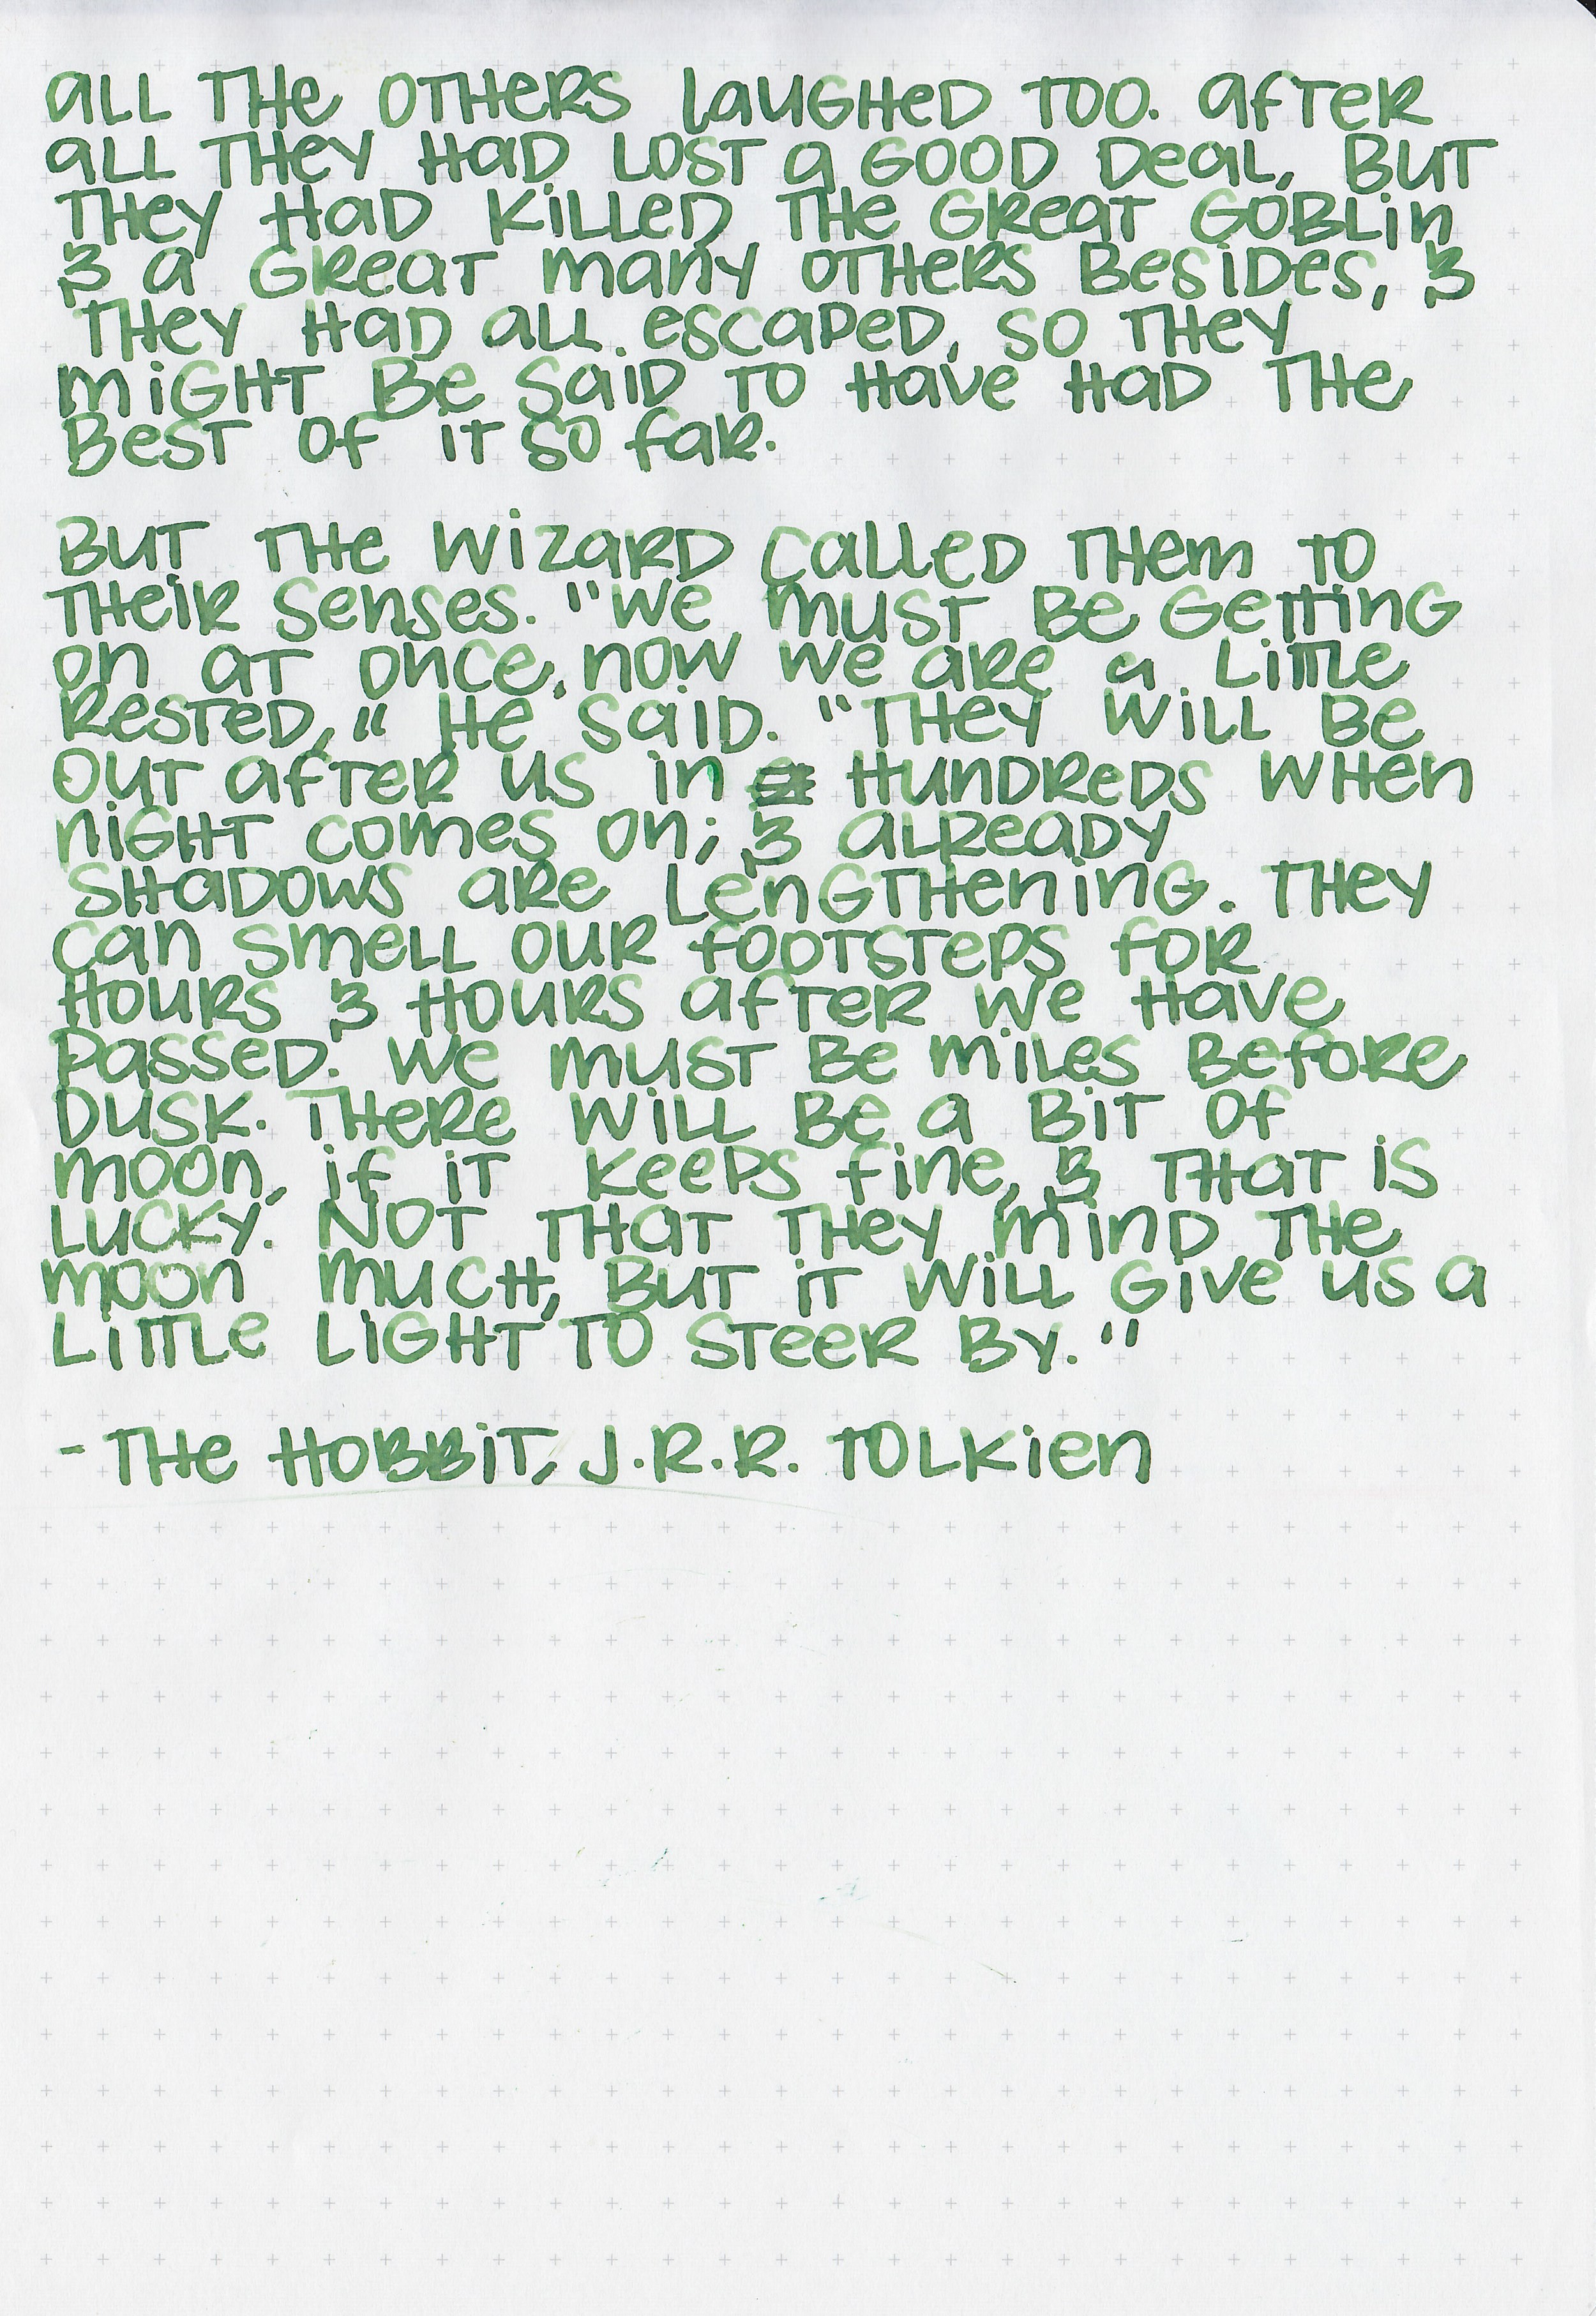 All the others laughed too. After
all they had lost a good deal, but
they had killed the Great Goblin
& a great many others besides, &
they had all escaped, so they
might be said to have had the
best of it so far.
But the wizard called them to
their senses. "We must be getting
on at once, now we are a little
rested," he said. "They will be
out after us in hundreds when
night comes on; & already
shadows are lengthening. They
can smell our footsteps for
hours & hours after we have
passed. We must be miles before
dusk. There will be a bit of
moon, if it keeps fine, & that is
lucky. Not that they mind the
moon much, but it will give us a
little light to steer by."
- The Hobbit, J.R.R. Tolkien